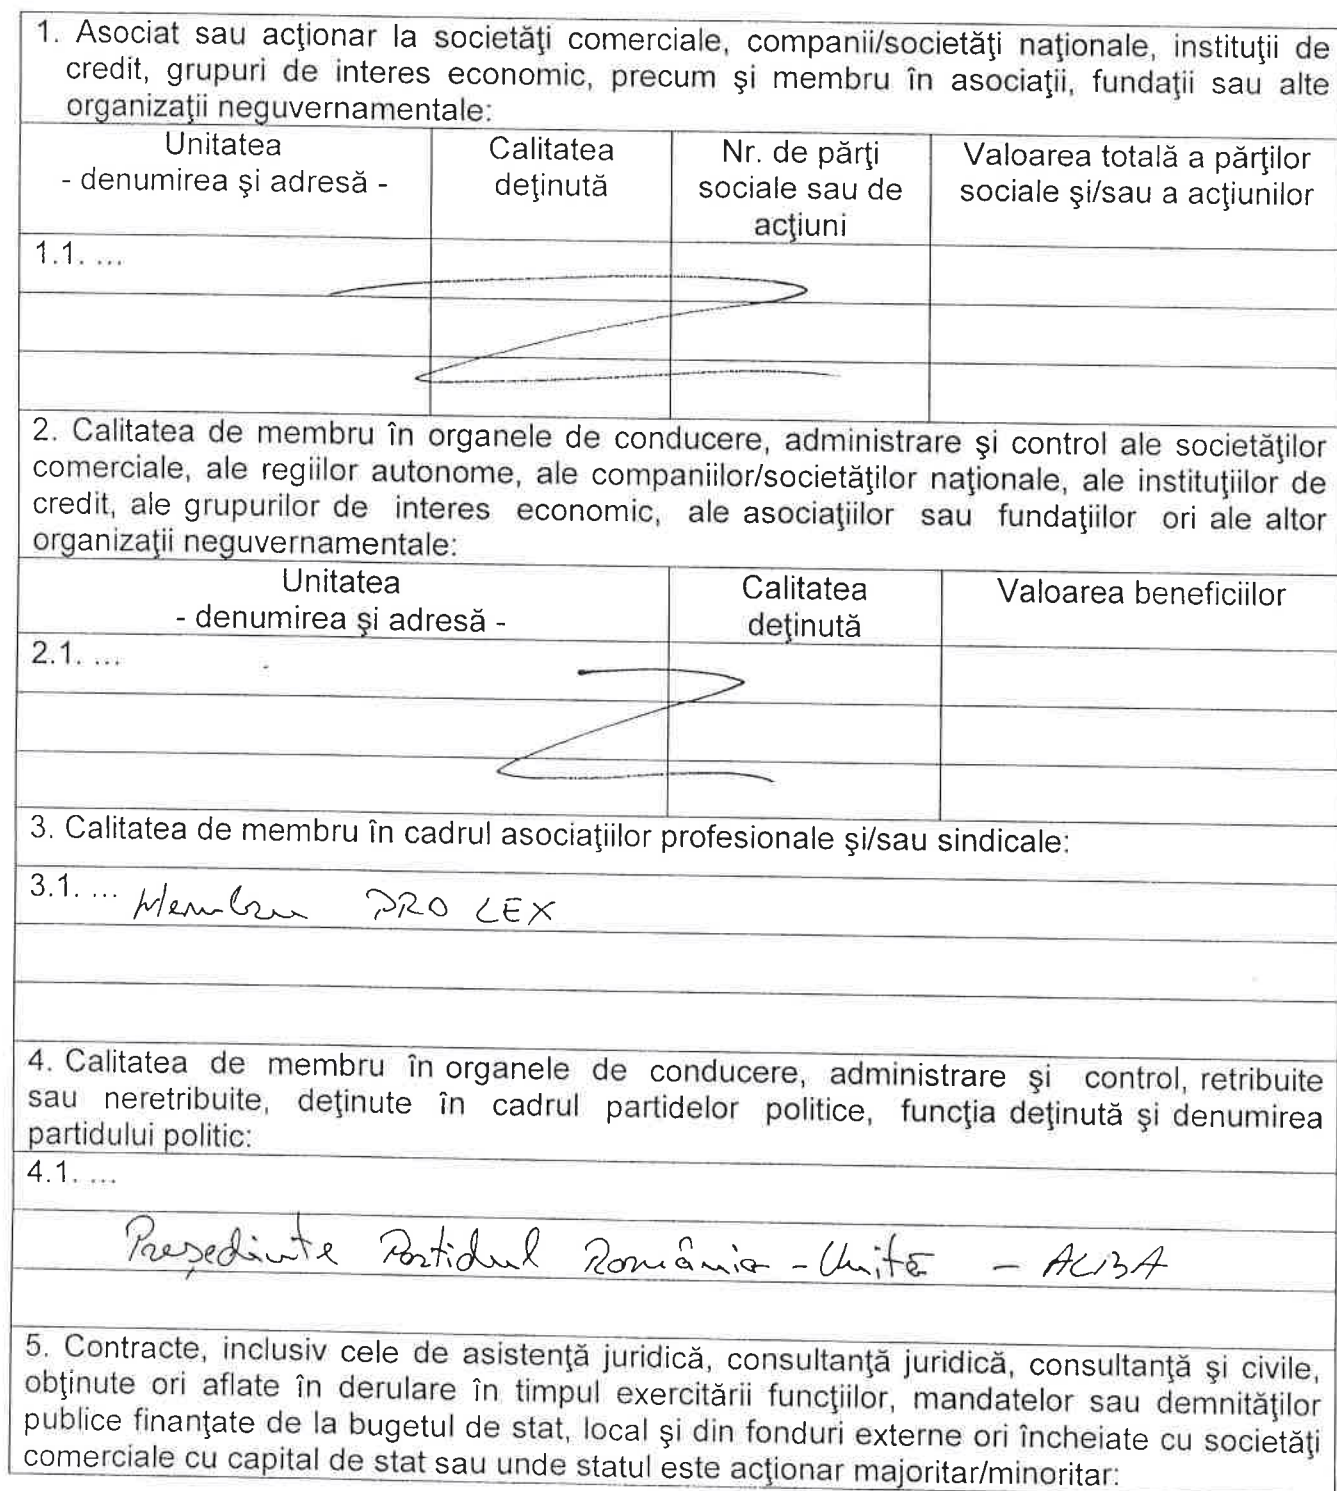 1. Asociat sau acţionar la societăţi comerciale, companii/societăţi naţionale, instituţii de
credit, grupuri de interes economic, precum şi membru în asociaţii, fundaţii sau alte
organizaţii neguvernamentale:
Unitatea
- denumirea şi adresă -
Calitatea
deţinută
Nr. de părţi
sociale sau de
acţiuni
Valoarea totală a părţilor
sociale şi/sau a acţiunilor
1.1. ...
2. Calitatea de membru în organele de conducere, administrare şi control ale societăţilor
comerciale, ale regiilor autonome, ale companiilor/societăţilor naţionale, ale instituţiilor de
credit, ale grupurilor de interes economic, ale asociaţiilor sau fundaţiilor ori ale altor
organizaţii neguvernamentale:
Unitatea
- denumirea şi adresă -
Calitatea
deţinută
Valoarea beneficiilor
2.1. ...
3. Calitatea de membru în cadrul asociaţiilor profesionale şi/sau sindicale:
3.1. ... Membru PRO LEX
4. Calitatea de membru în organele de conducere, administrare şi control, retribuite
sau neretribuite, deţinute în cadrul partidelor politice, funcţia deţinută şi denumirea
partidului politic:
4.1. ...
Preşedinte Partidul România - Unită - ALBA
5. Contracte, inclusiv cele de asistenţă juridică, consultanţă juridică, consultanţă şi civile,
obţinute ori aflate în derulare în timpul exercitării funcţiilor, mandatelor sau demnităţilor
publice finanţate de la bugetul de stat, local şi din fonduri externe ori încheiate cu societăţi
comerciale cu capital de stat sau unde statul este acţionar majoritar/minoritar: